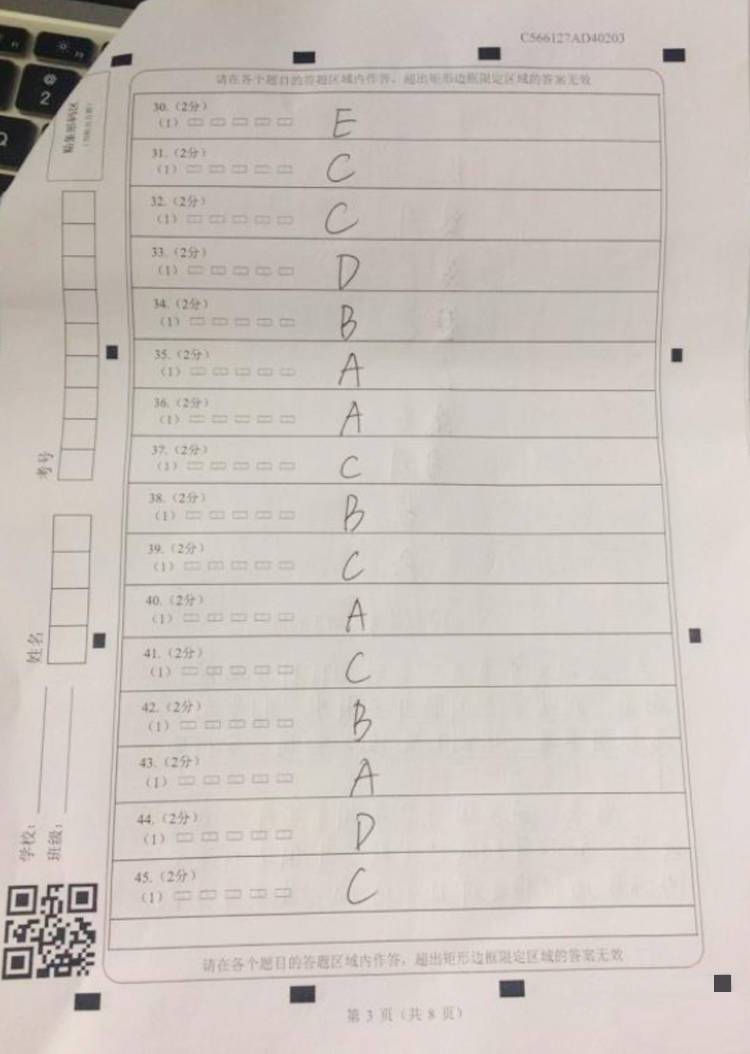 C566127AD40203
请在各个题目的答题区域内作答，超出矩形边框限定区域的答案无效
30.（2分）
（1） E
31.（2分）
（1） C
32.（2分）
（1） C
33.（2分）
（1） D
34.（2分）
（1） B
35.（2分）
（1） A
36.（2分）
（1） A
37.（2分）
（1） C
38.（2分）
（1） B
39.（2分）
（1） C
40.（2分）
（1） A
41.（2分）
（1） C
42.（2分）
（1） B
43.（2分）
（1） A
44.（2分）
（1） D
45.（2分）
（1） C
请在各个题目的答题区域内作答，超出矩形边框限定区域的答案无效
第 3 页（共 8 页）
贴条形码区
考号
姓名
学校：
班级：
2